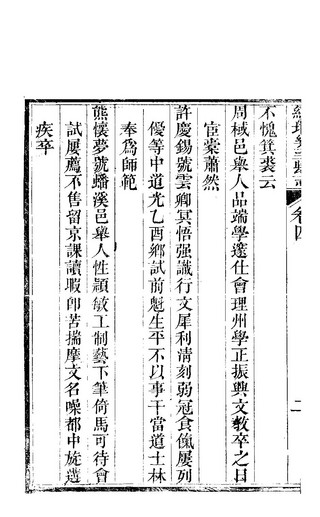 卷四
二
不愧箕裘云
周棫邑舉人品端學邃仕會理州學正振興文教卒之日
宦橐蕭然
許慶錫號雲卿冥悟强識行文犀利清刻弱冠食餼屢列
優等中道光乙酉鄉試前魁生平不以事干當道士林
奉爲師範
熊懷夢號蟠溪邑舉人性穎敏工制藝下筆倚馬可待會
試屢薦不售留京課讀暇卽苦揣摩文名噪都中旋遘
疾卒